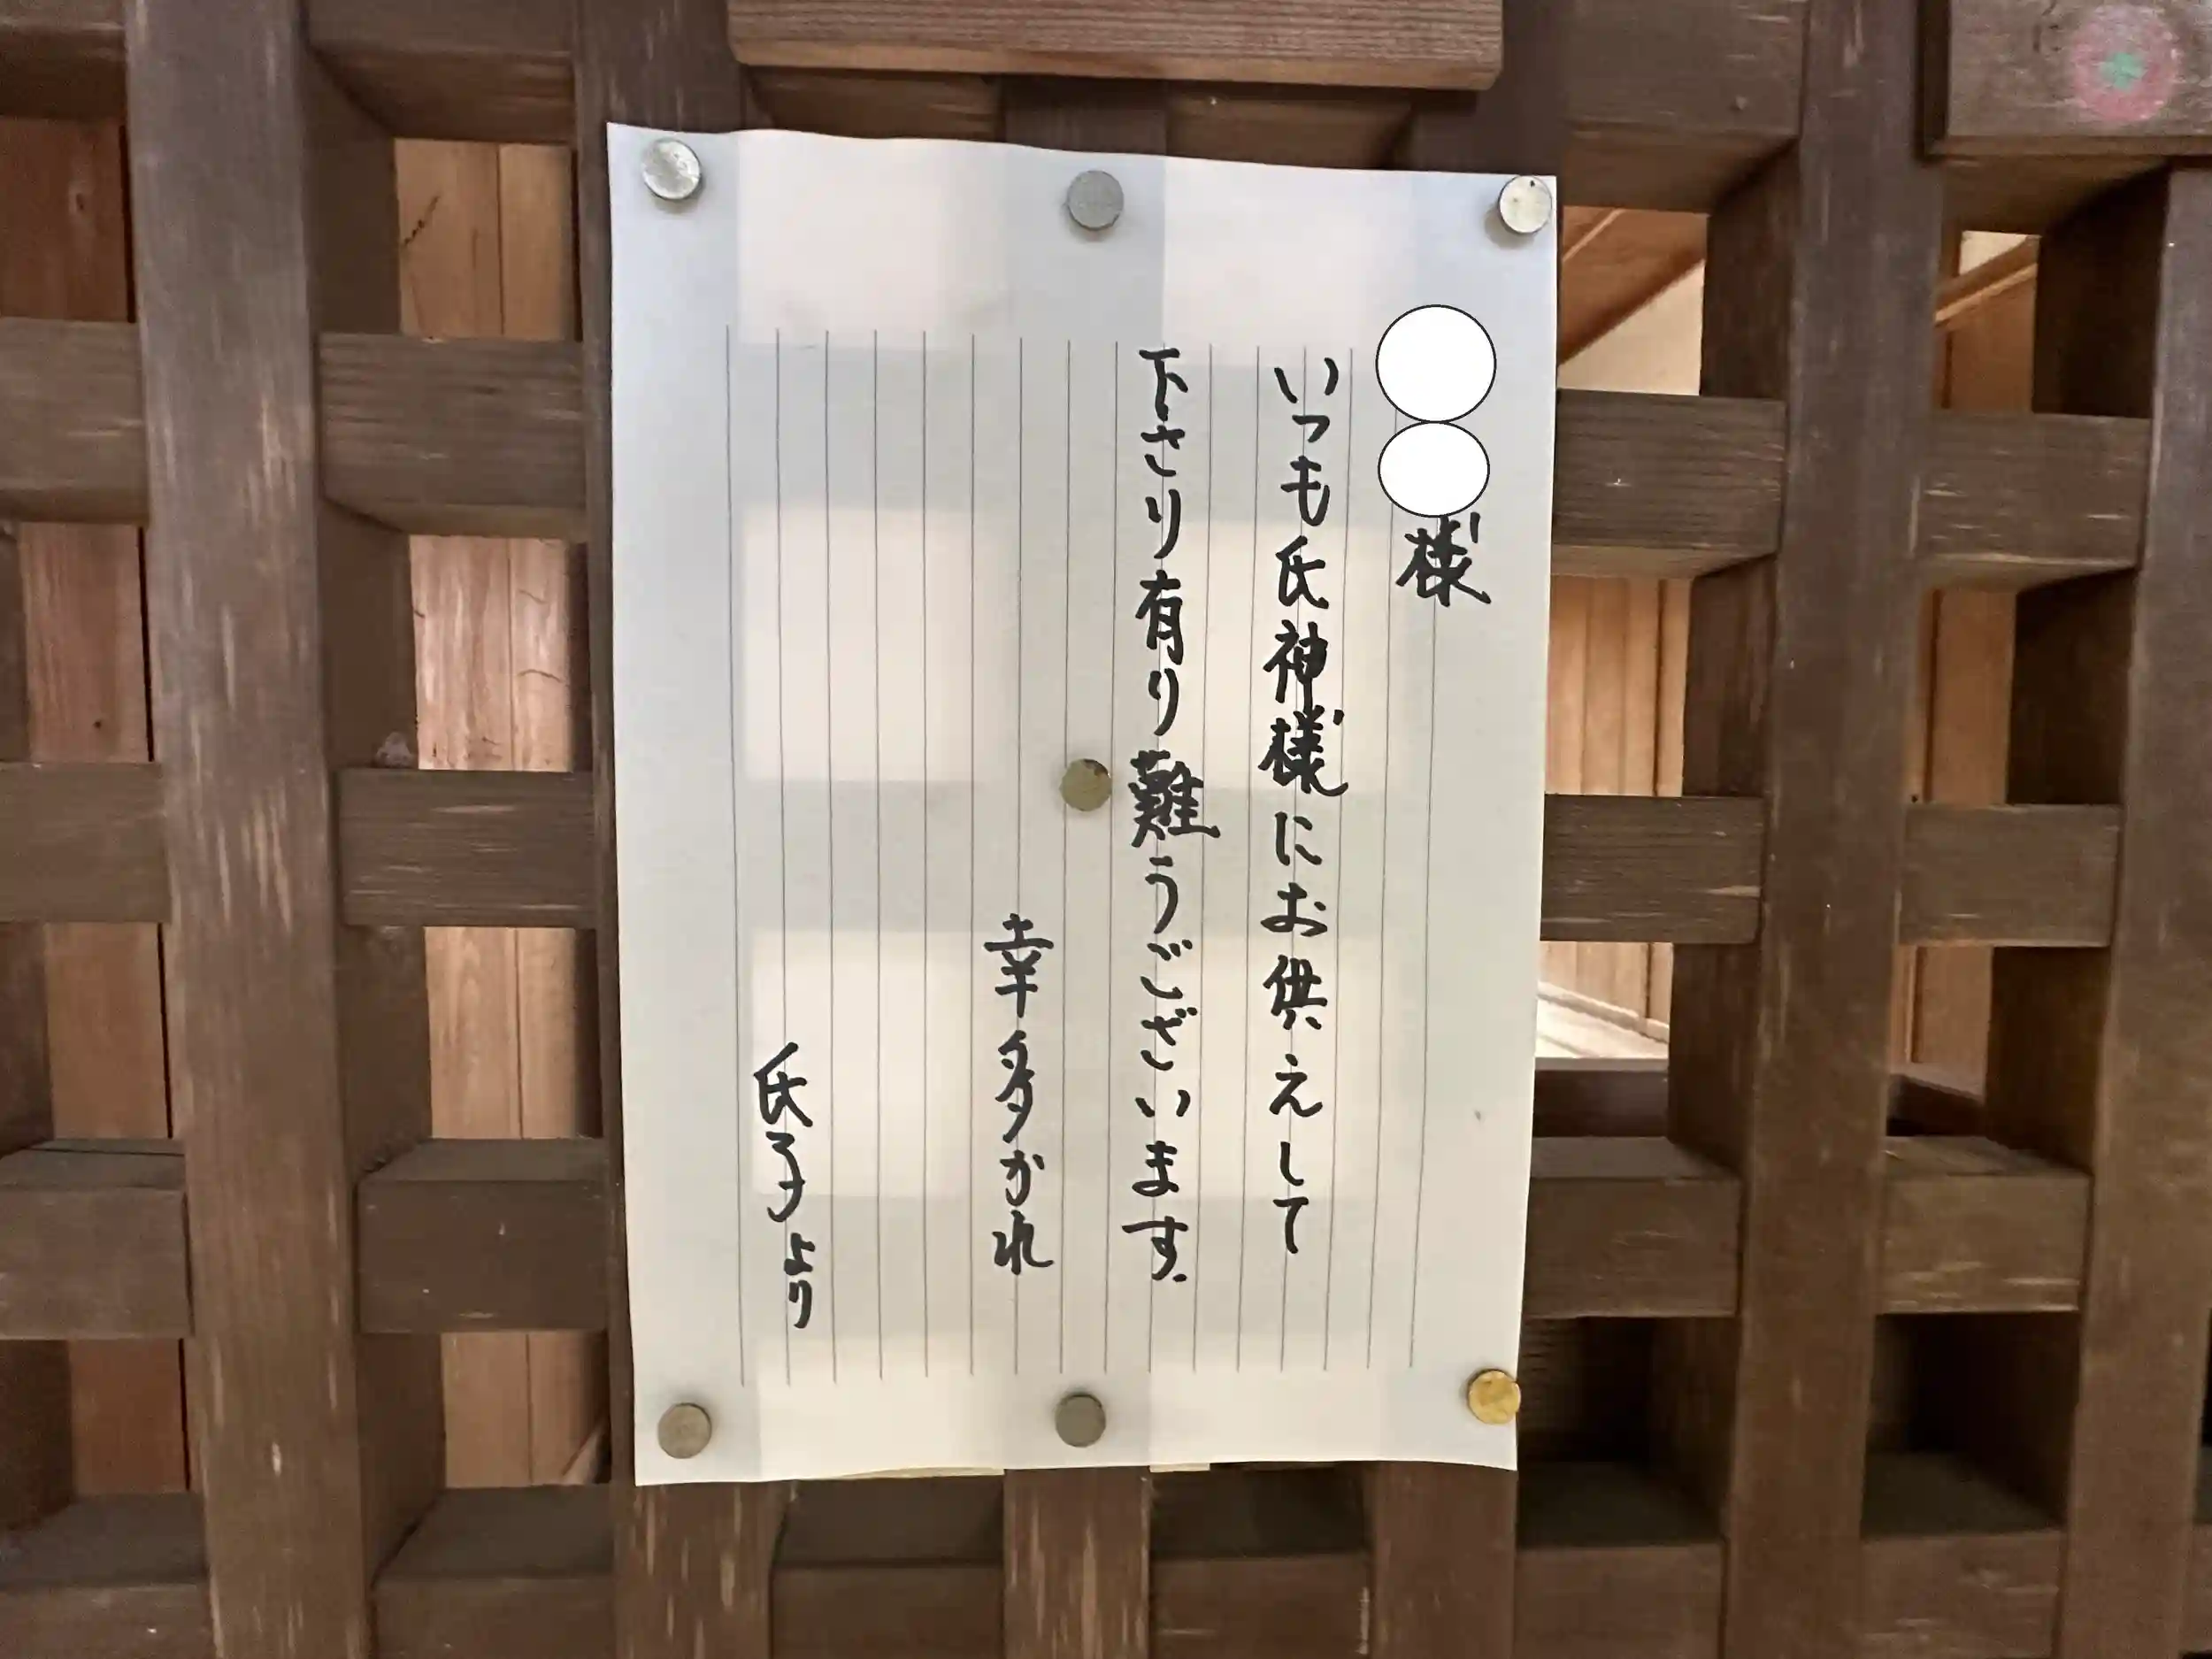 様
いつも氏神様にお供えして
下さり有り難うございます。
幸多かれ
氏子より